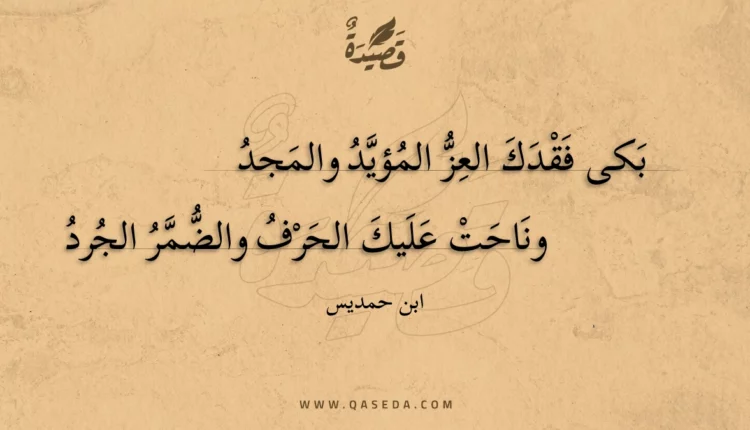 قَصِيْدَةٌ
بَكى فَقْدَكَ العِزُّ المُؤيَّدُ والمَجدُ
ونَاحَتْ عَلَيكَ الحَرْفُ والضُّمَّرُ الجُردُ
ابن حمديس
WWW.QASEDA.COM